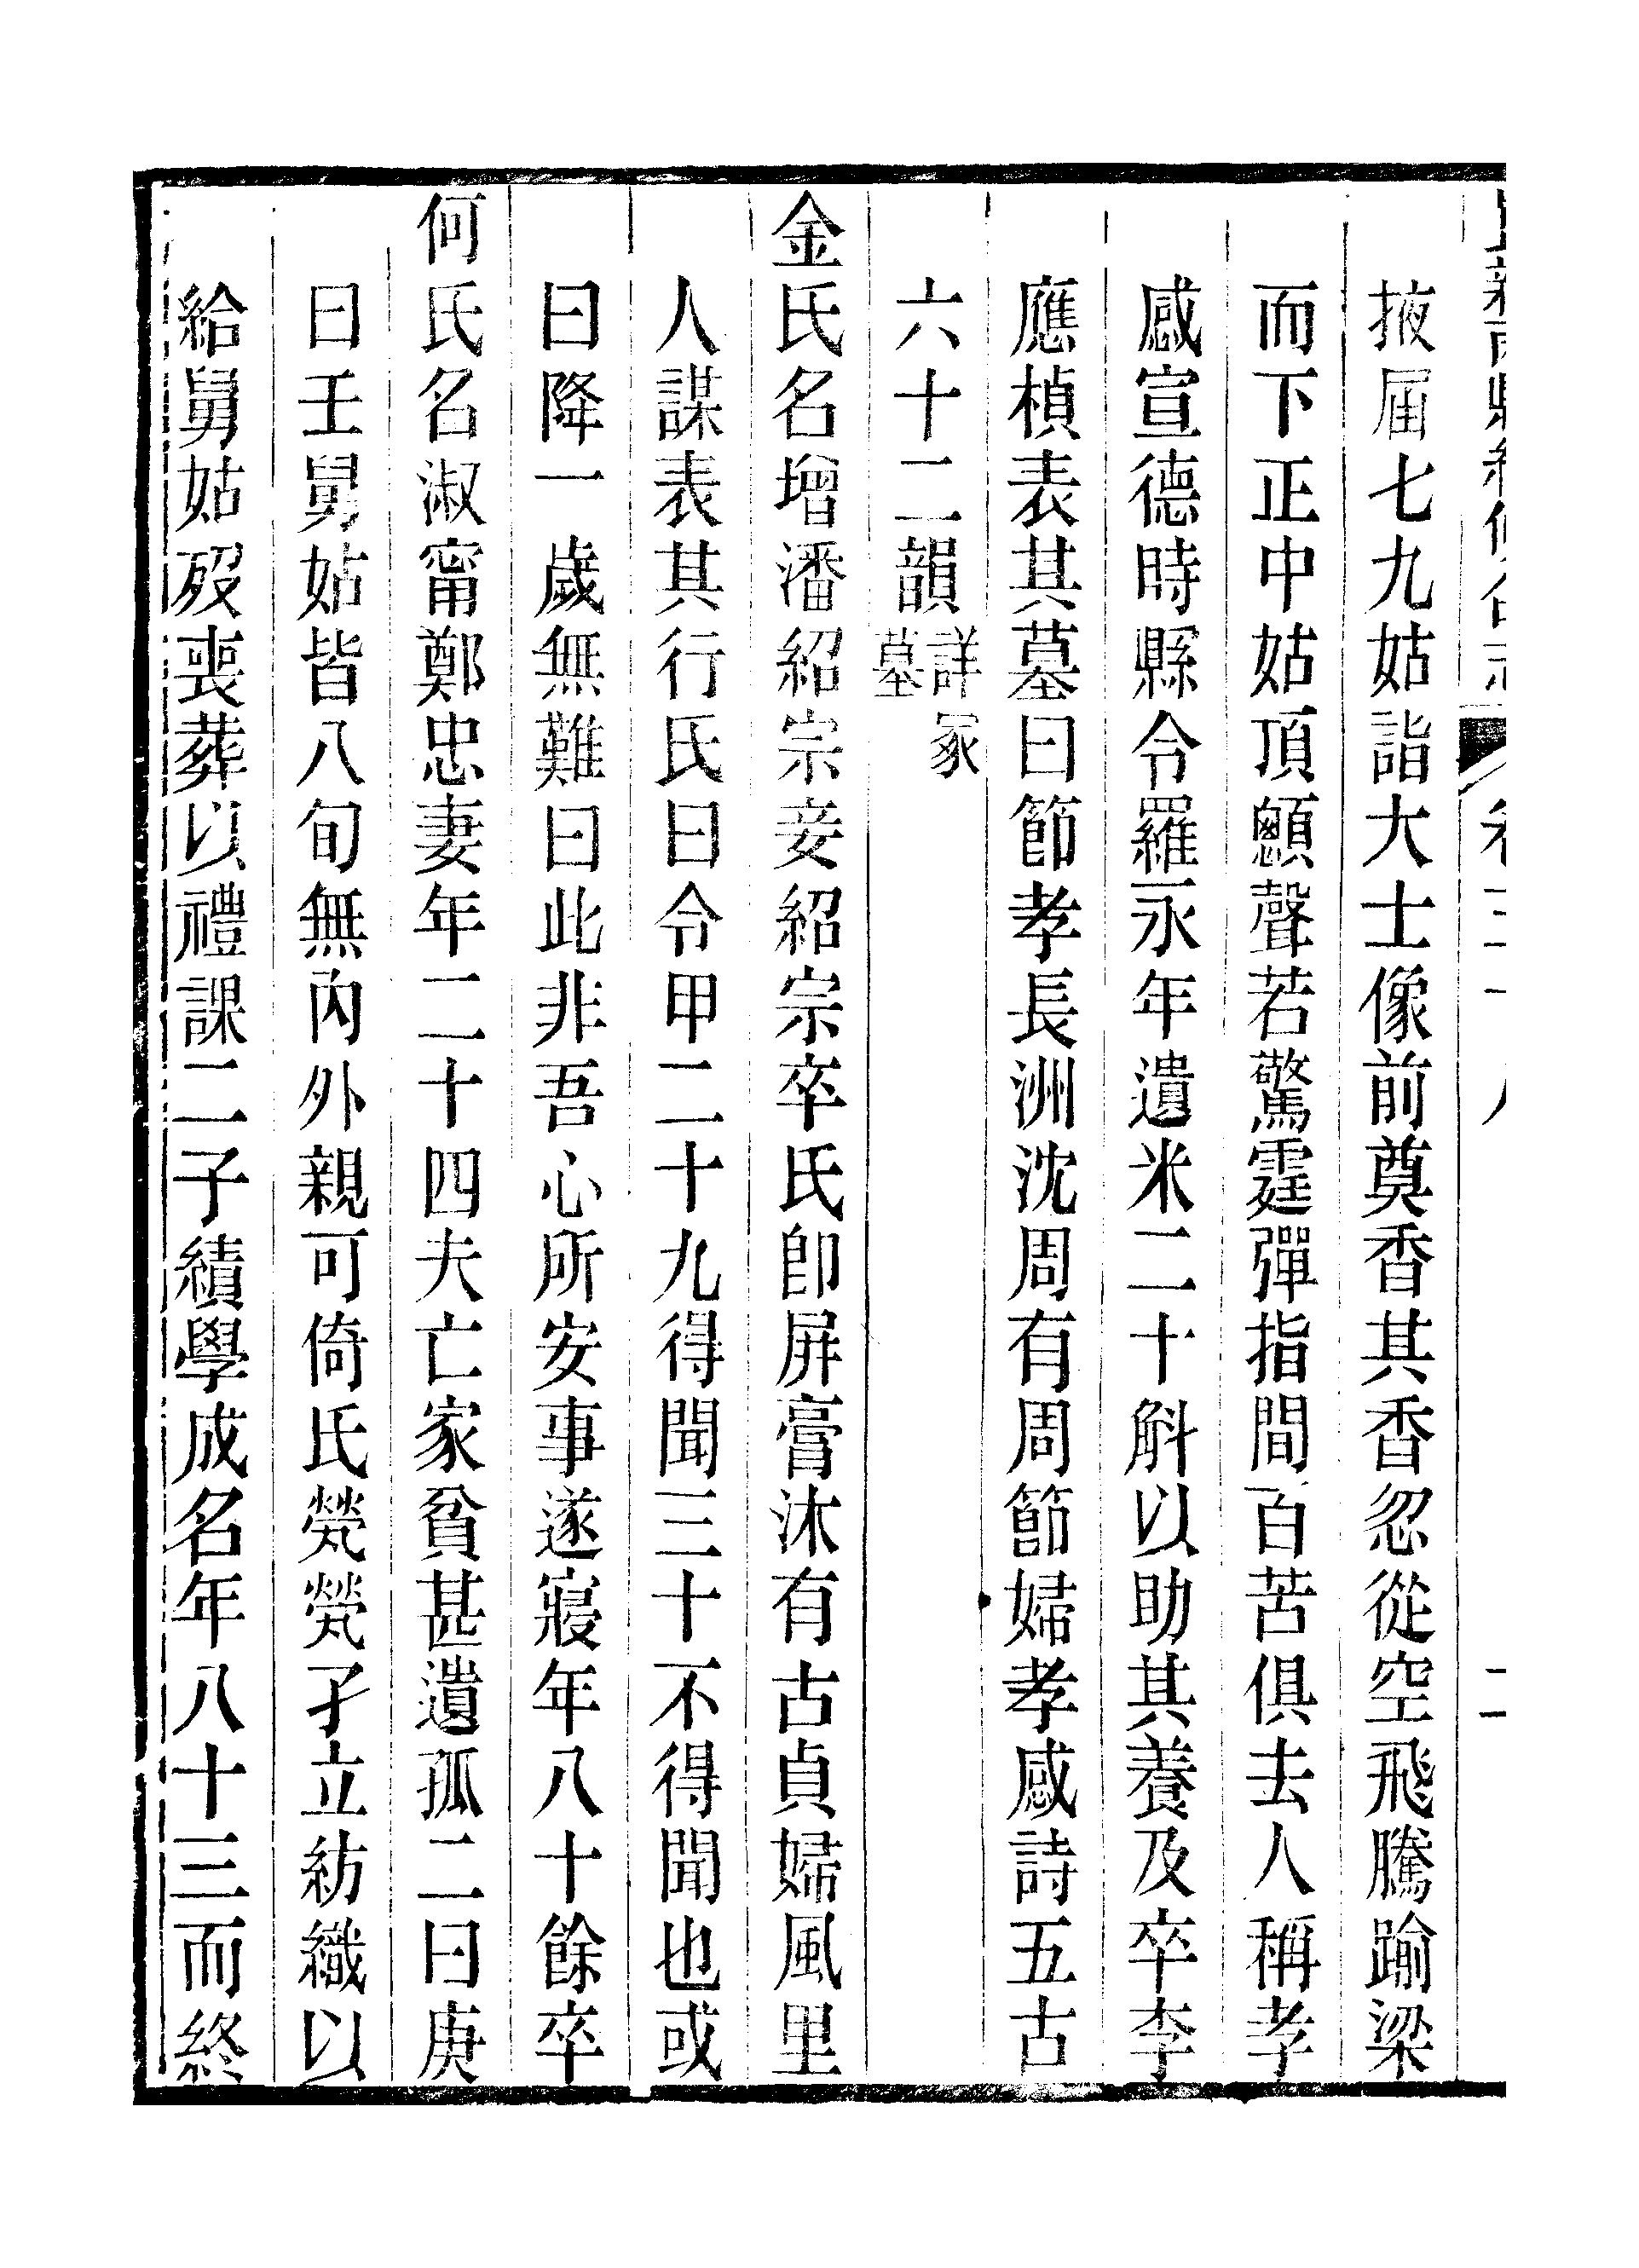 掖届七九姑詣大士像前奠香其香忽從空飛騰踰梁
而下正中姑頂顱聲若驚霆彈指間百苦俱去人稱孝
感宣德時縣令羅永年遺米二十斛以助其養及卒李
應楨表其墓曰節孝長洲沈周有周節婦孝感詩五古
六十二韻詳冢墓
金氏名增潘紹宗妾紹宗卒氏卽屏膏沐有古貞婦風里
人謀表其行氏曰令甲二十九得聞三十不得聞也或
曰降一歲無難曰此非吾心所安事遂寢年八十餘卒
何氏名淑甯鄭忠妻年二十四夫亡家貧甚遺孤二曰庚
曰壬舅姑皆八旬無內外親可倚氏煢煢孑立紡織以
給舅姑歿喪葬以禮課二子績學成名年八十三而終